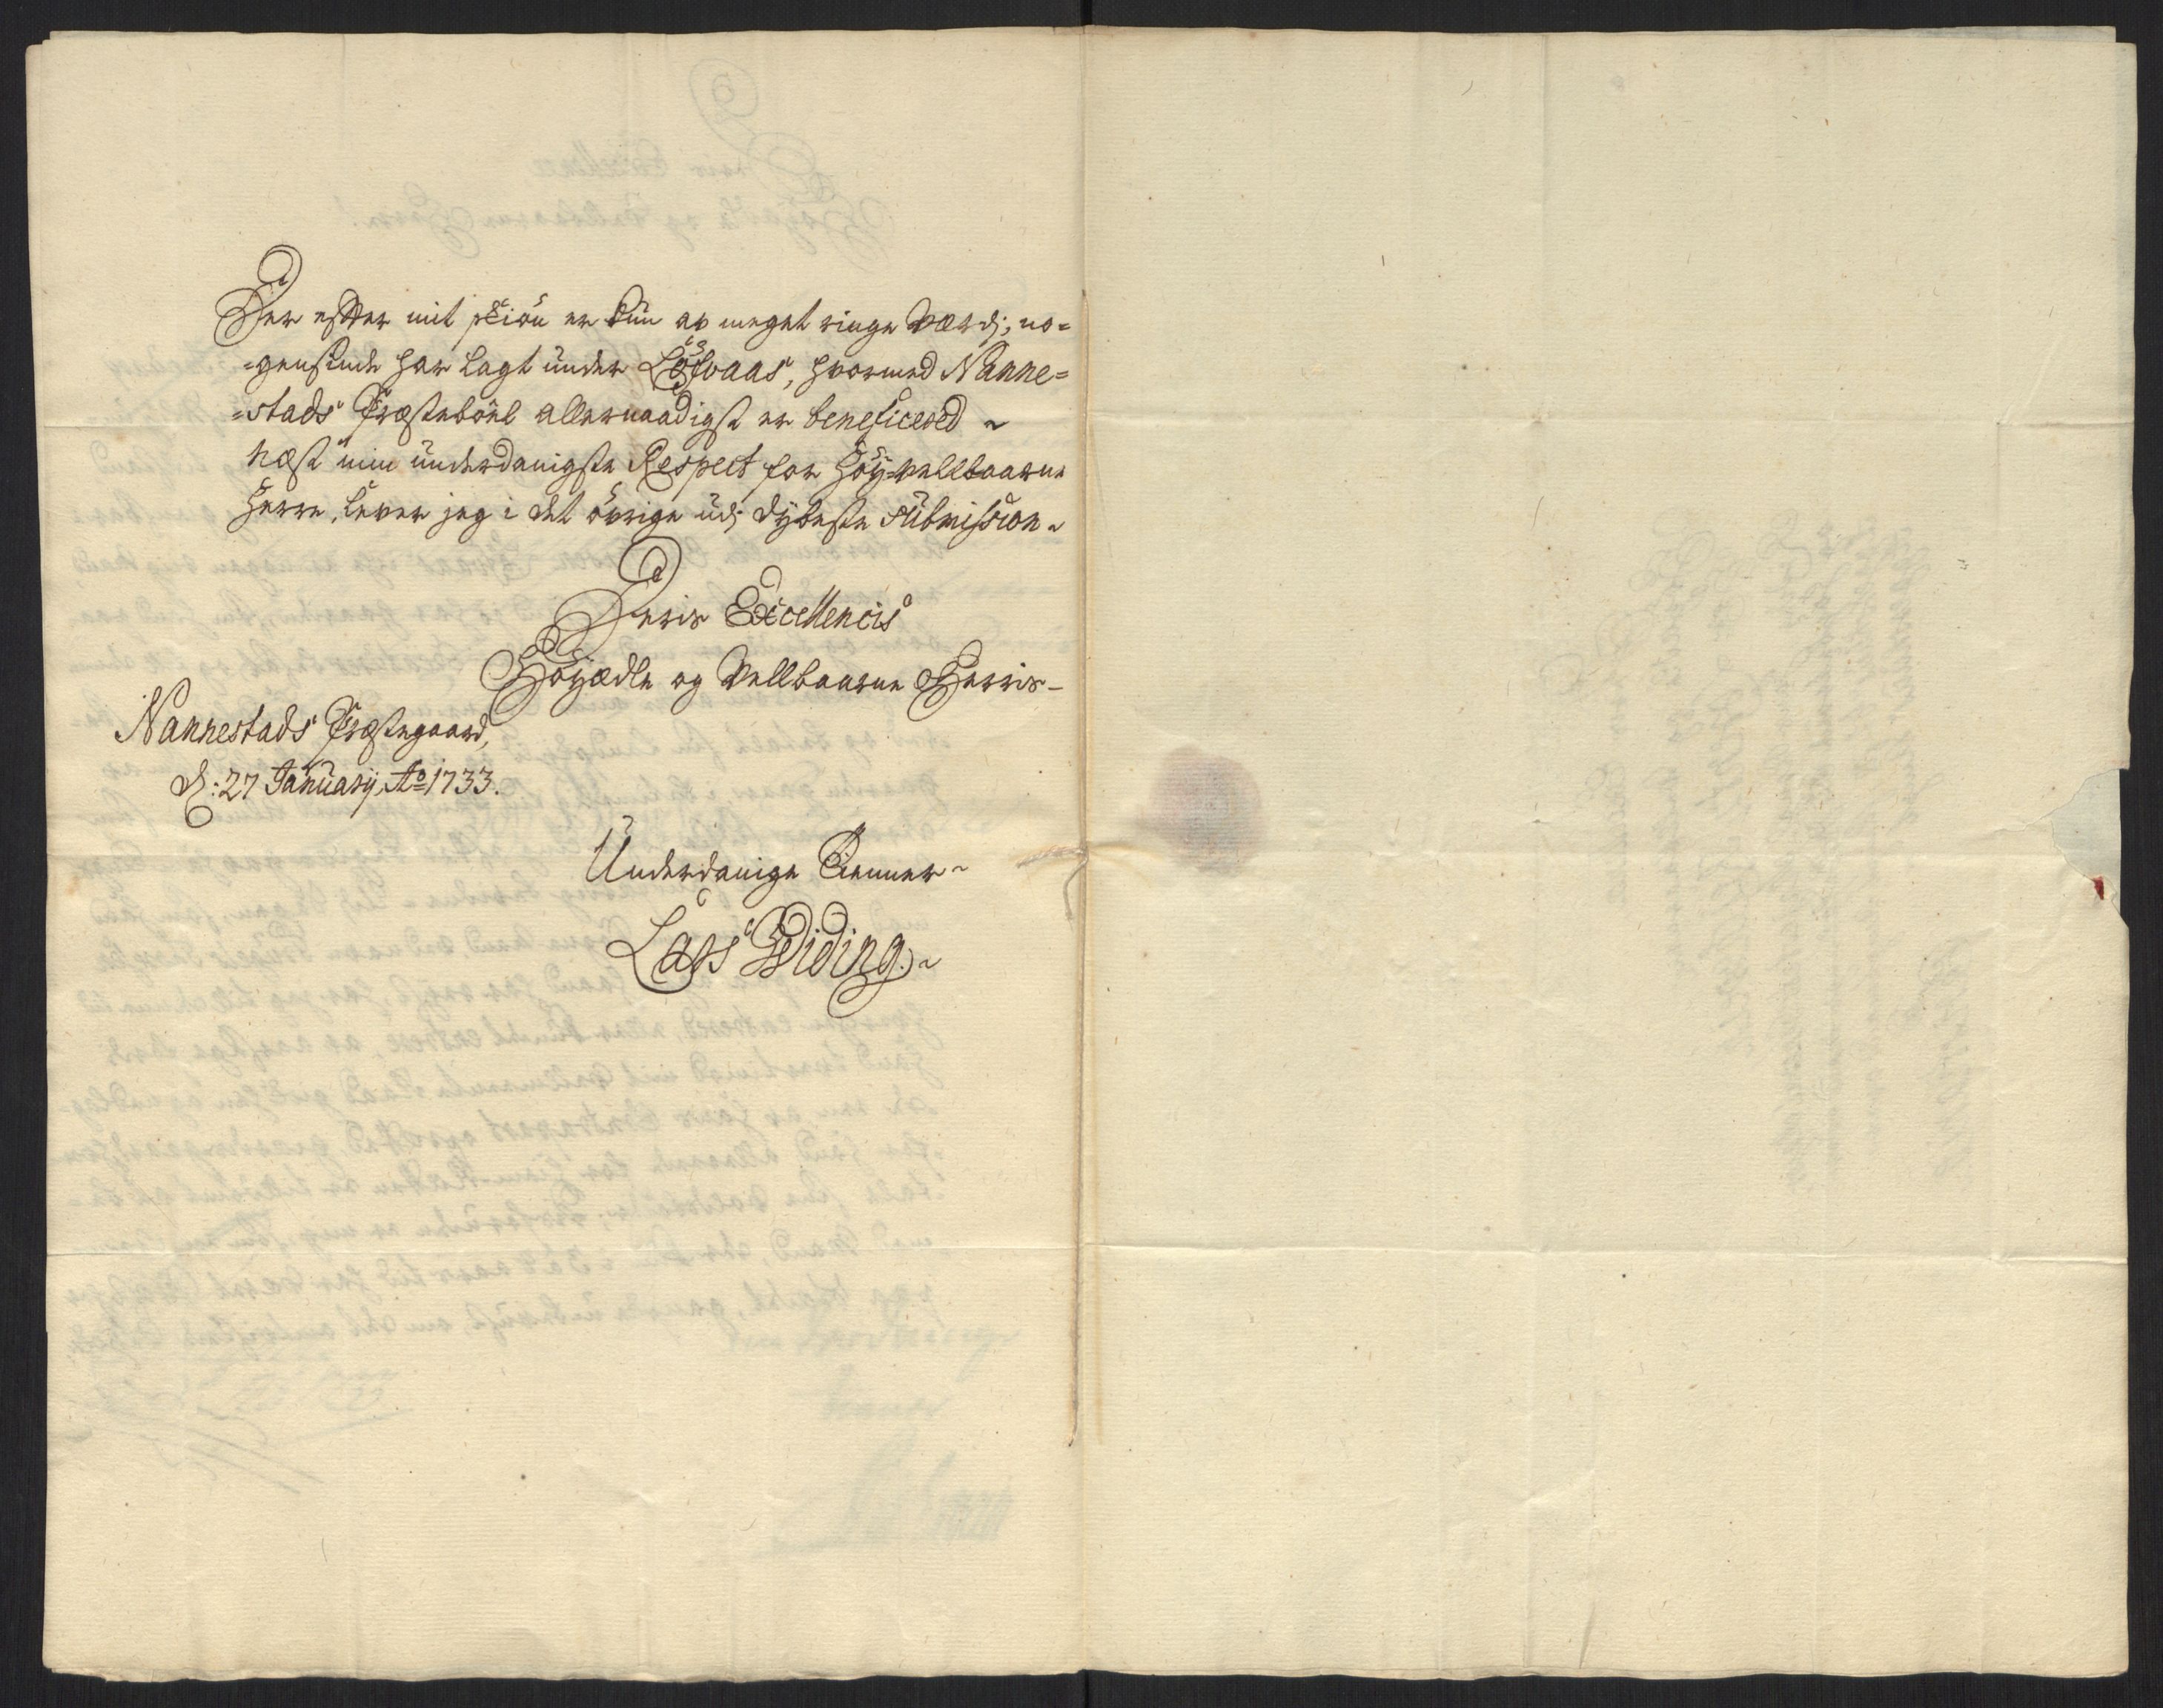 Der effter mit skiøn er kun av meget ringe værdj, no=
=gensinde har lagt under Løsvaas, hvormed Nanne=
=stads Præsteböel allernaadigst er beneficered ~
Næst min underdanigste Respect for Höy=vellbaarne
Herre, lever jeg i det övrige udj dybeste submission ~
Deris Excellencis
Höyædle og Vellbaarne Herris –
Nannestads Præstegaard,
d: 27 January, Ao 1733.
Underdanige Tienner ~
Lars Widing. ~